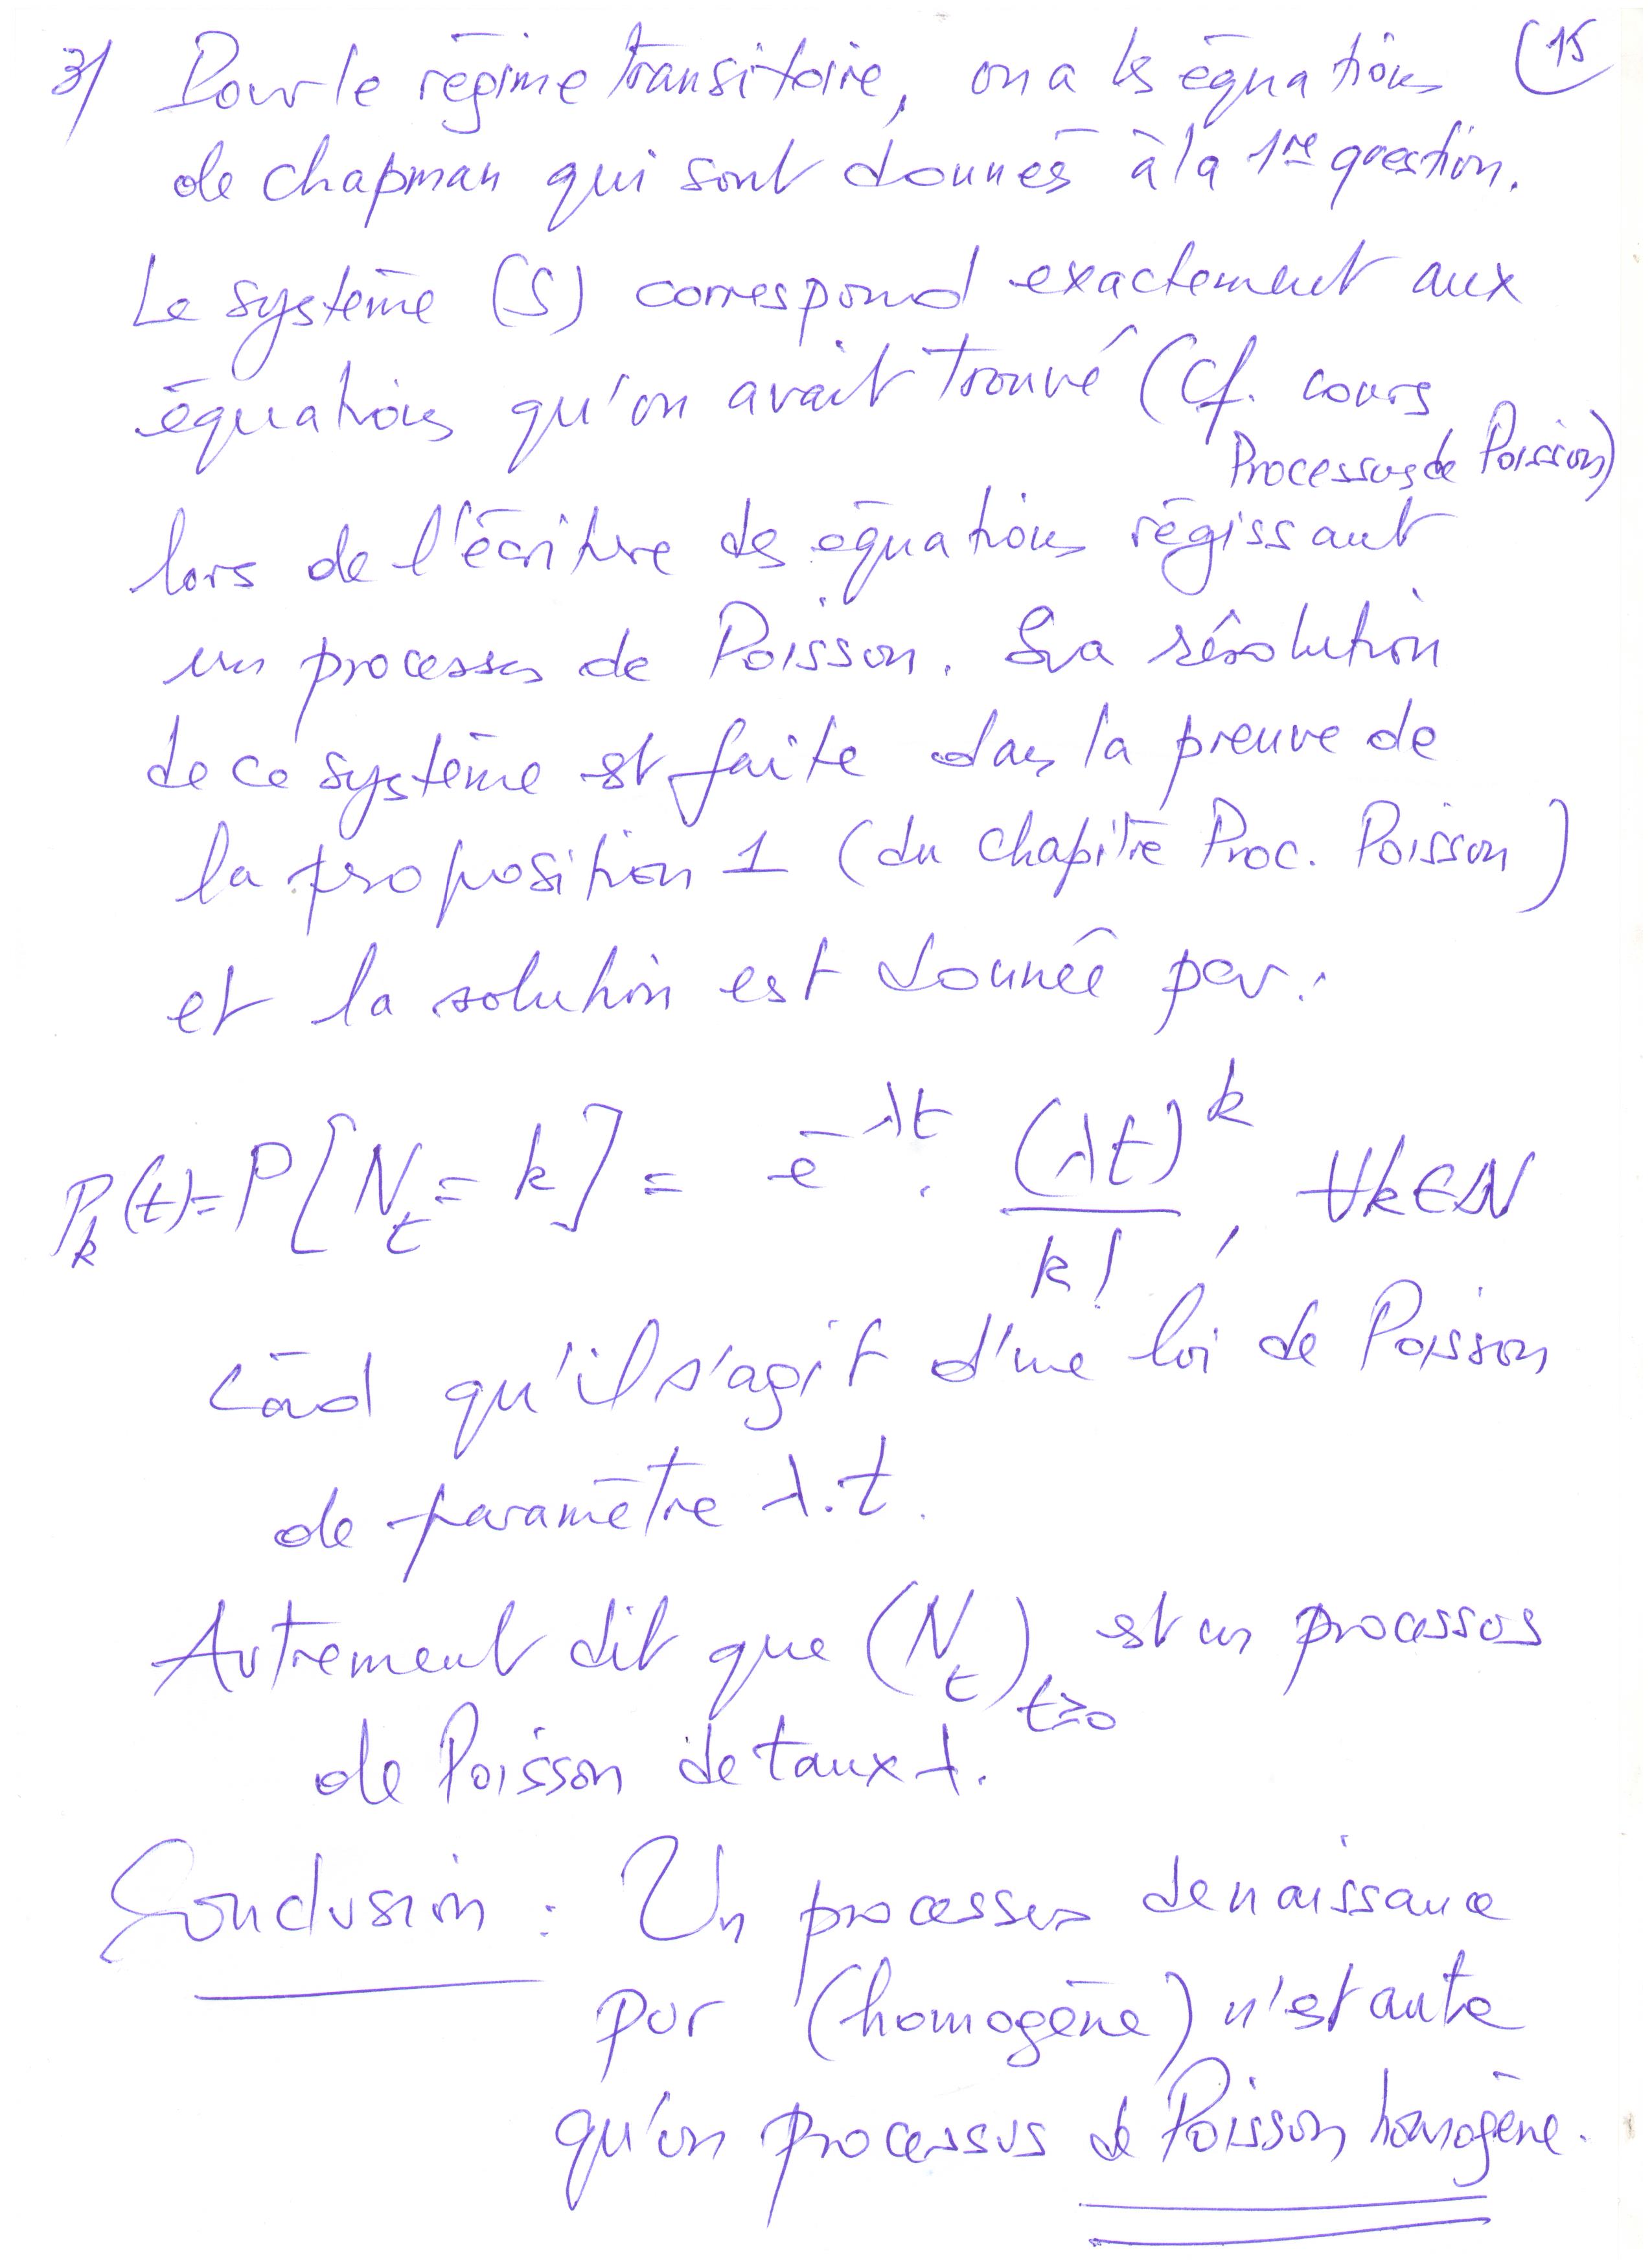 3/ Pour le régime transitoire, on a les équations (15
de chapman qui sont donnés à la 1re question.
Le système (S) correspond exactement aux
équations qu'on avait trouvé (Cf. cours
Processus de Poisson)
lors de l'écriture des équations régissant
un processus de Poisson. La résolution
de ce système est faite dans la preuve de
la proposition 1 (du chapitre Proc. Poisson)
et la solution est donnée par :
P_k(t) = P[N_t = k] = e^{-λt} . (λt)^k / k! , ∀k∈ℕ
càd qu'il s'agit d'une loi de Poisson
de paramètre λ.t.
Autrement dit que (N_t)_{t≥0} est un processus
de Poisson de taux λ.
Conclusion : Un processus de naissance
pur (homogène) n'est autre
qu'un processus de Poisson homogène.